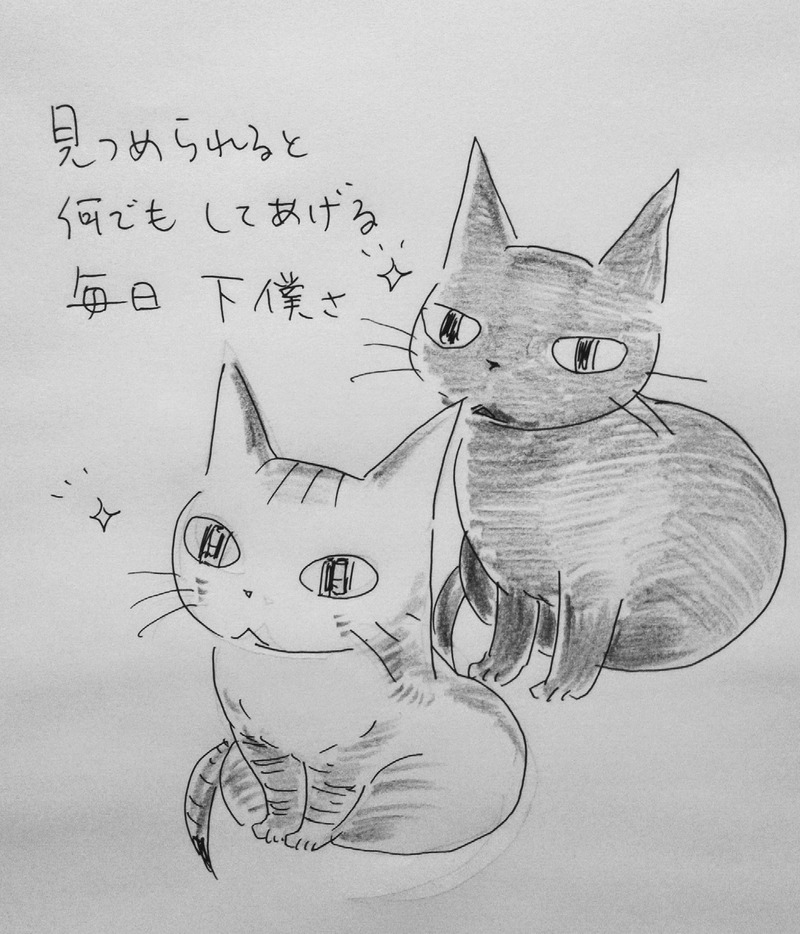 見つめられると
何でも してあげる
毎日 下僕さ